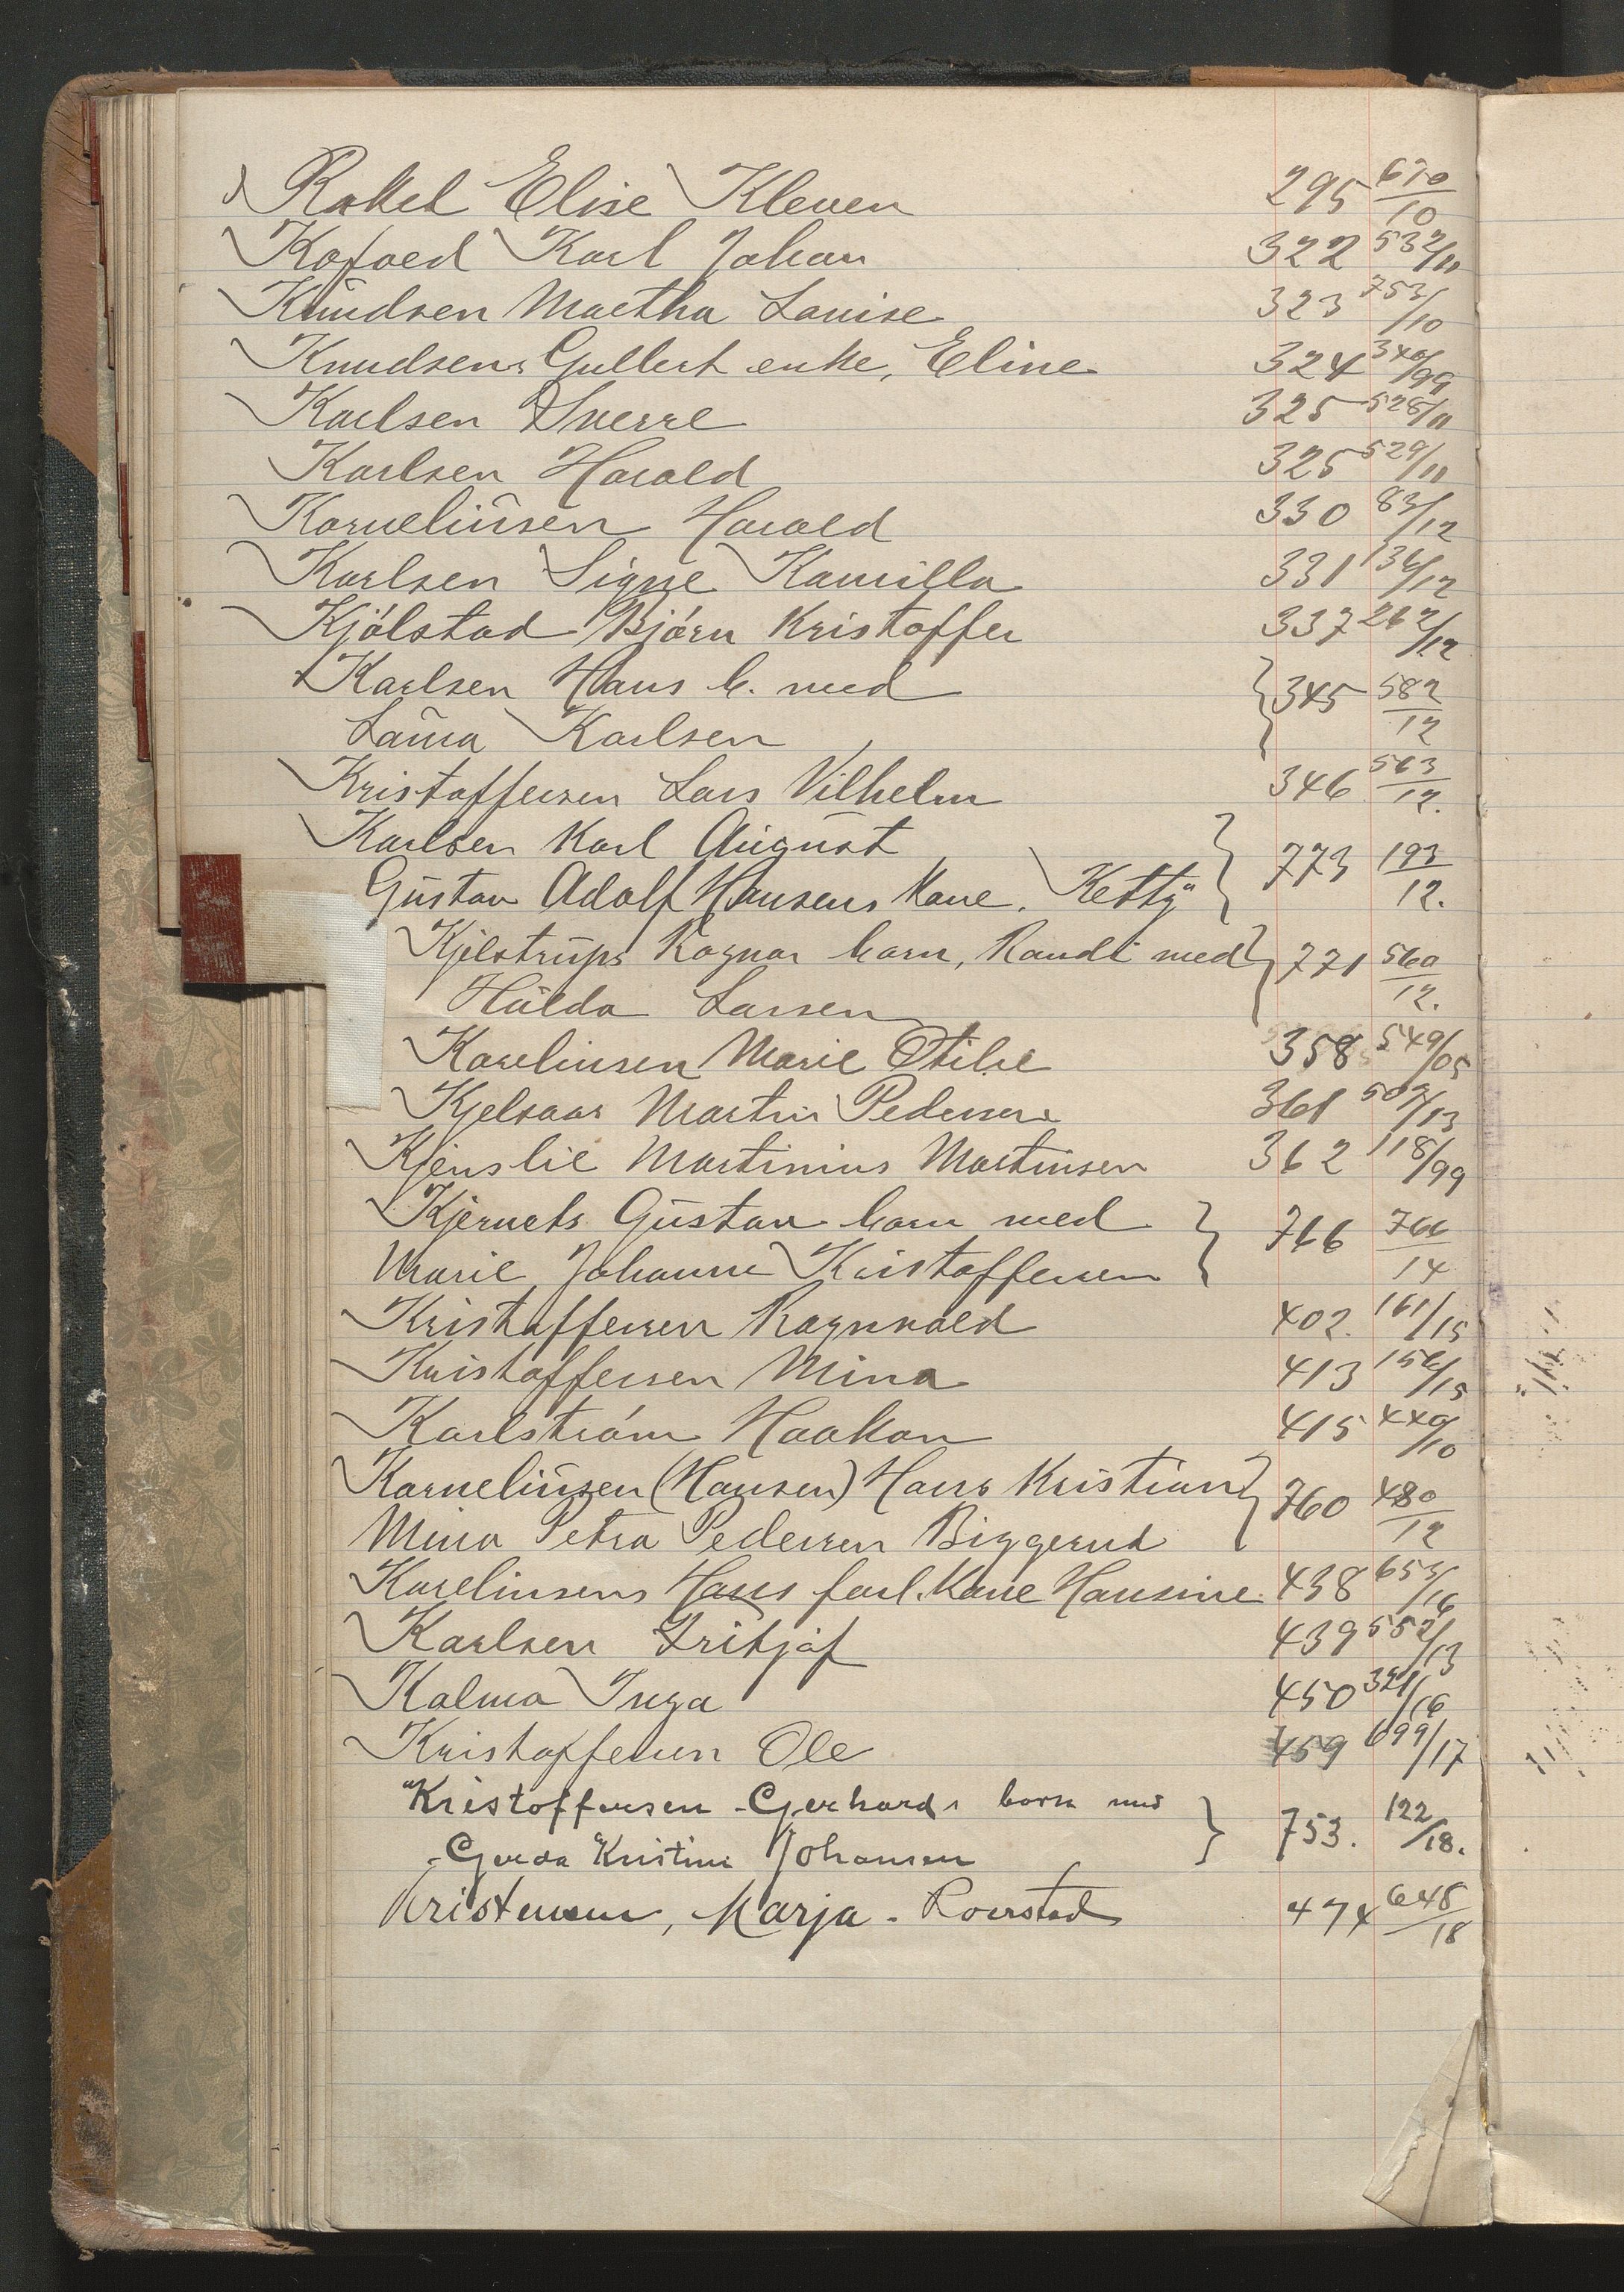 Rakel Elise Kleven 295 670/10
Kofoed Karl Johan 322 532/11
Knudsen Martha Lovise 323 753/10
Knudsens Gullert enke, Eline 324 340/99
Karlsen Sverre 325 528/11
Karlsen Harald 325 529/11
Korneliusen Harald 330 83/12
Karlsen Signe Kamilla 331 136/12
Kjölstad Björn Kristoffer 337 262/12
Karlsen Hans C. med } 345 582/12
Laura Karlsen
Kristoffersen Lars Vilhelm 346 563/12.
Karlsen Karl August } 773 193/12.
Gustav Adolf Hansens Kone. "Ketty"
Kjelstrups Ragnar barn, Randi med } 771 560/12.
Hulda Larsen
Koreliusen Marie Otilie 358 549/05
Kjelsaas Martin Pedersen 361 502/13
Kjenslie Martinius Martinsen 362 118/99
Kjernets Gustav barn med } 766 766/14
Marie Johanne Kristoffersen
Kristoffersen Ragnvald 402. 161/15
Kristoffersen Mina 413 156/15
Karlström Haakon 415 440/10
Korneliusen (Hansen) Hans Kristian } 760 480/12
Mina Petra Pedersen Biggerud
Koreliusens Hans forl. Kone Hansine 438 653/16
Karlsen Fritjof 439 552/13
Kalma Inga 450 321/16
Kristoffersen Ole 459 699/17
Kristoffersen Gerhards barn med } 753. 122/18.
Gerda Kristine Johansen
Kristensen, Marja - Roerstad 474 648/18